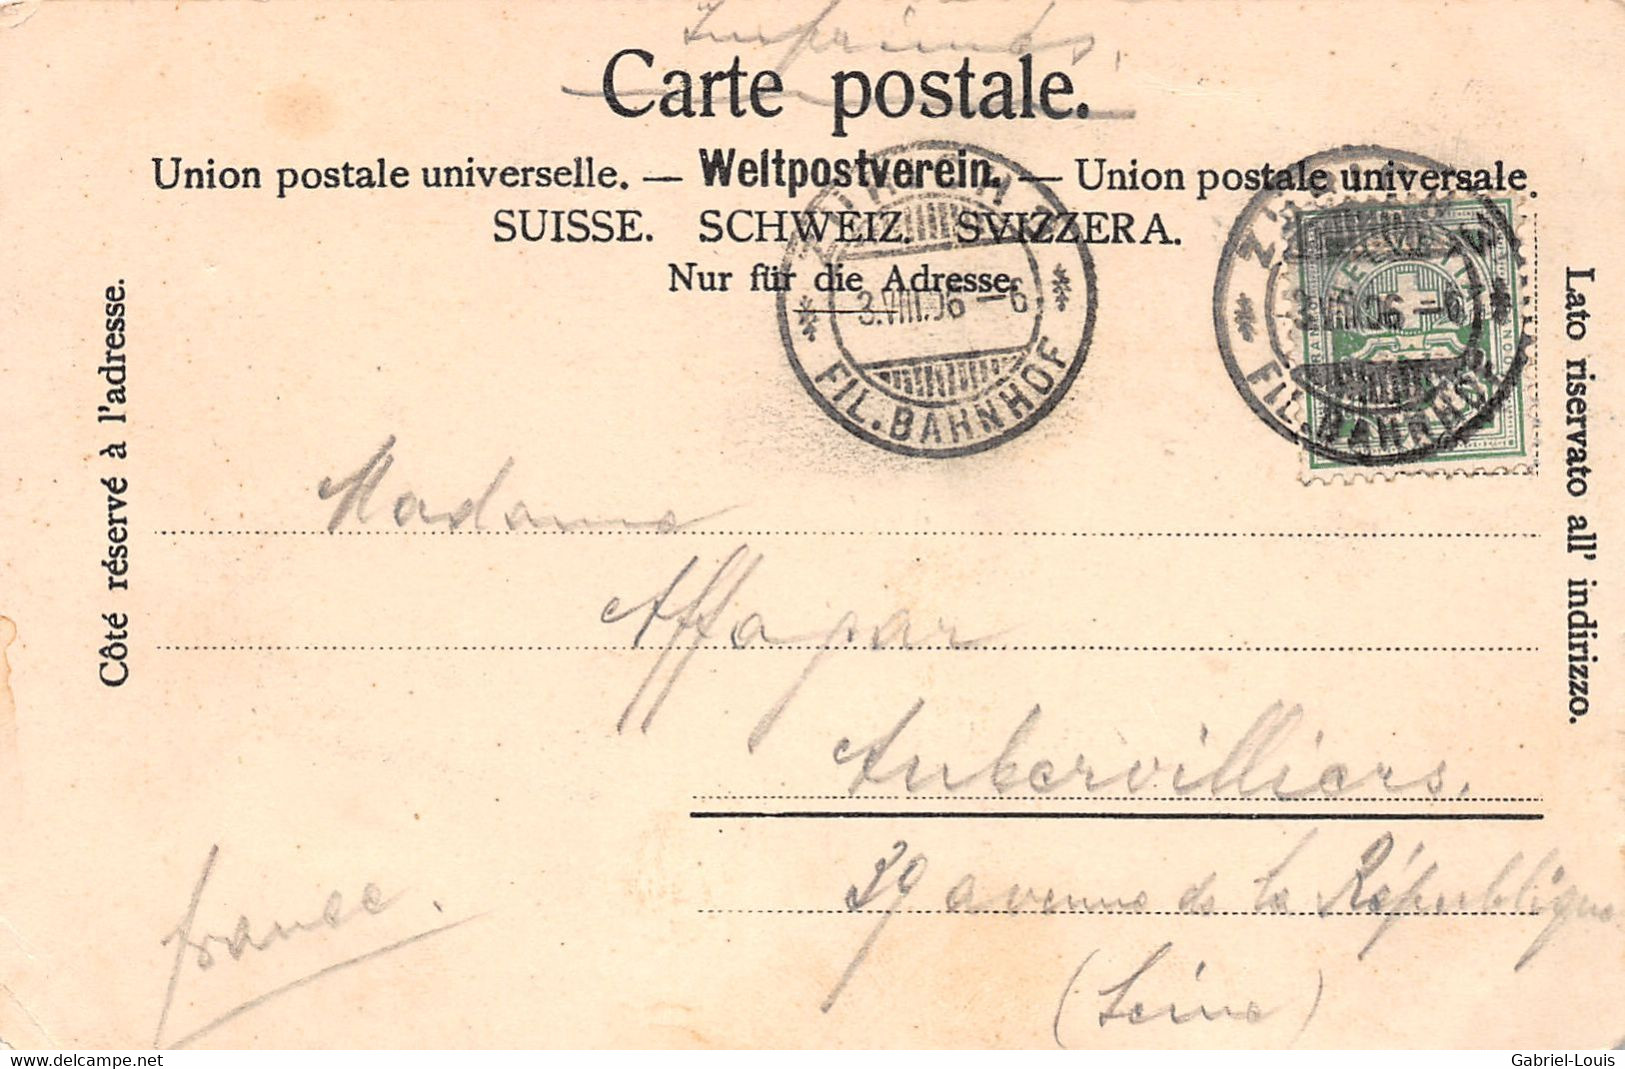 Imprimés.
Carte postale.
Union postale universelle. — Weltpostverein. — Union postale universale.
SUISSE. SCHWEIZ. SVIZZERA.
Nur für die Adresse.
Côté réservé à l'adresse.
Lato riservato all' indirizzo.
3.VIII.06 – 6
FIL. BAHNHOF
3.VIII.06 – 6
FIL. BAHNHOF
HELVETIA
Madame
Affagar
Aubervilliers.
39 avenue de la République
(Seine)
france.
www.delcampe.net
Gabriel-Louis